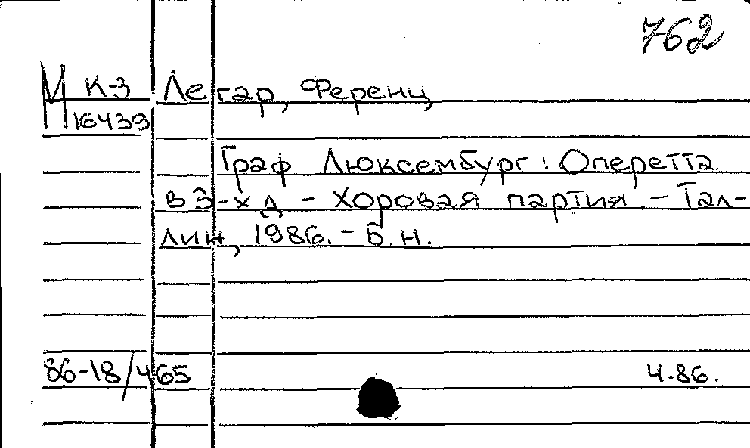 762
М К-3 Легар, Ференц
16439
Граф Люксембург: Оперетта
в 3-х д - Хоровая партия. - Тал-
лин, 1986. - Б.н.
86-18/465 4.86.